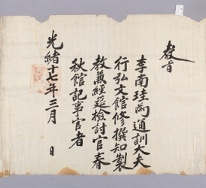 敎旨
李南珪爲通訓大夫
行弘文館修撰知製
敎兼經筵檢討官春
秋館記事官者
光緖十七年三月 日